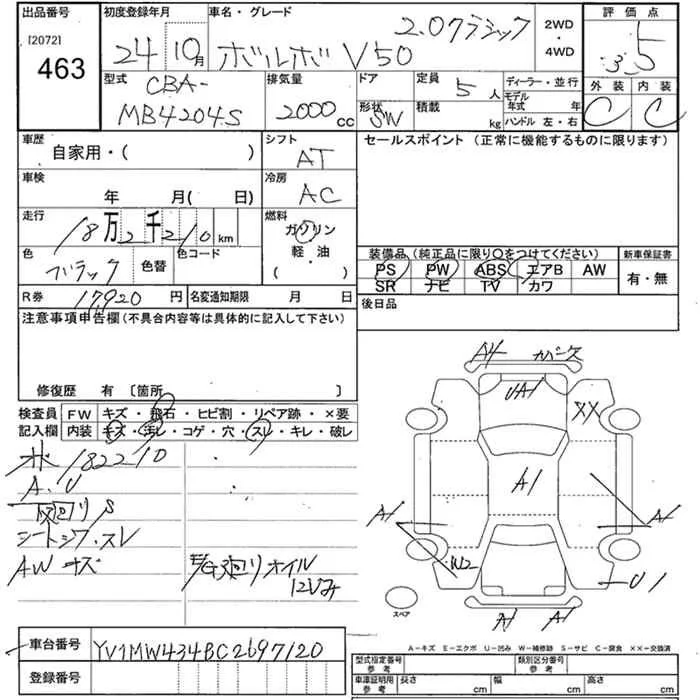 出品番号 初度登録年月 車名・グレード 2.0クラシック 2WD・4WD 評価点
[2072] 463 24 10月 ボルボ V50 3.5
型式 CBA- MB4204S 排気量 2000 cc ドア 形状 SW 定員 5 人 積載 kg ディーラー・並行 モデル年式 年 ハンドル 左・右 外装 C 内装 C
車歴 自家用・( ) シフト AT セールスポイント (正常に機能するものに限ります)
車検 年 月( 日) 冷房 AC
走行 18万2千210 km 燃料 ガソリン 軽・油 ( )
色 ブラック 色替 色コード
装備品 (純正品に限り〇をつけてください) 新車保証書
PS PW ABS エアB AW 有・無
SR ナビ TV カワ
R券 17,920 円 名変通知期限 月 日 後日品
注意事項申告欄(不具合内容等は具体的に記入して下さい)
修復歴 有 [箇所 ]
検査員 FW キズ・飛石・ヒビ割・リペア跡・×要
記入欄 内装 キズ・汚レ・コゲ・穴・スレ・キレ・破レ
182210
A.U
下回りS
シートシワ・スレ
AW キズ
E/G廻りオイル
A4
UA1
XX
A1
A1
A1
W2
U1
スペア
A1 A1
車台番号 YV1MW434BC2697120
登録番号
A-キズ E-エクボ U-凹み W-補修跡 S-サビ C-腐食 XX-交換済
型式指定番号 参考 類別区分番号 参考
車庫証明用 参考 長さ cm 幅 cm 高さ cm